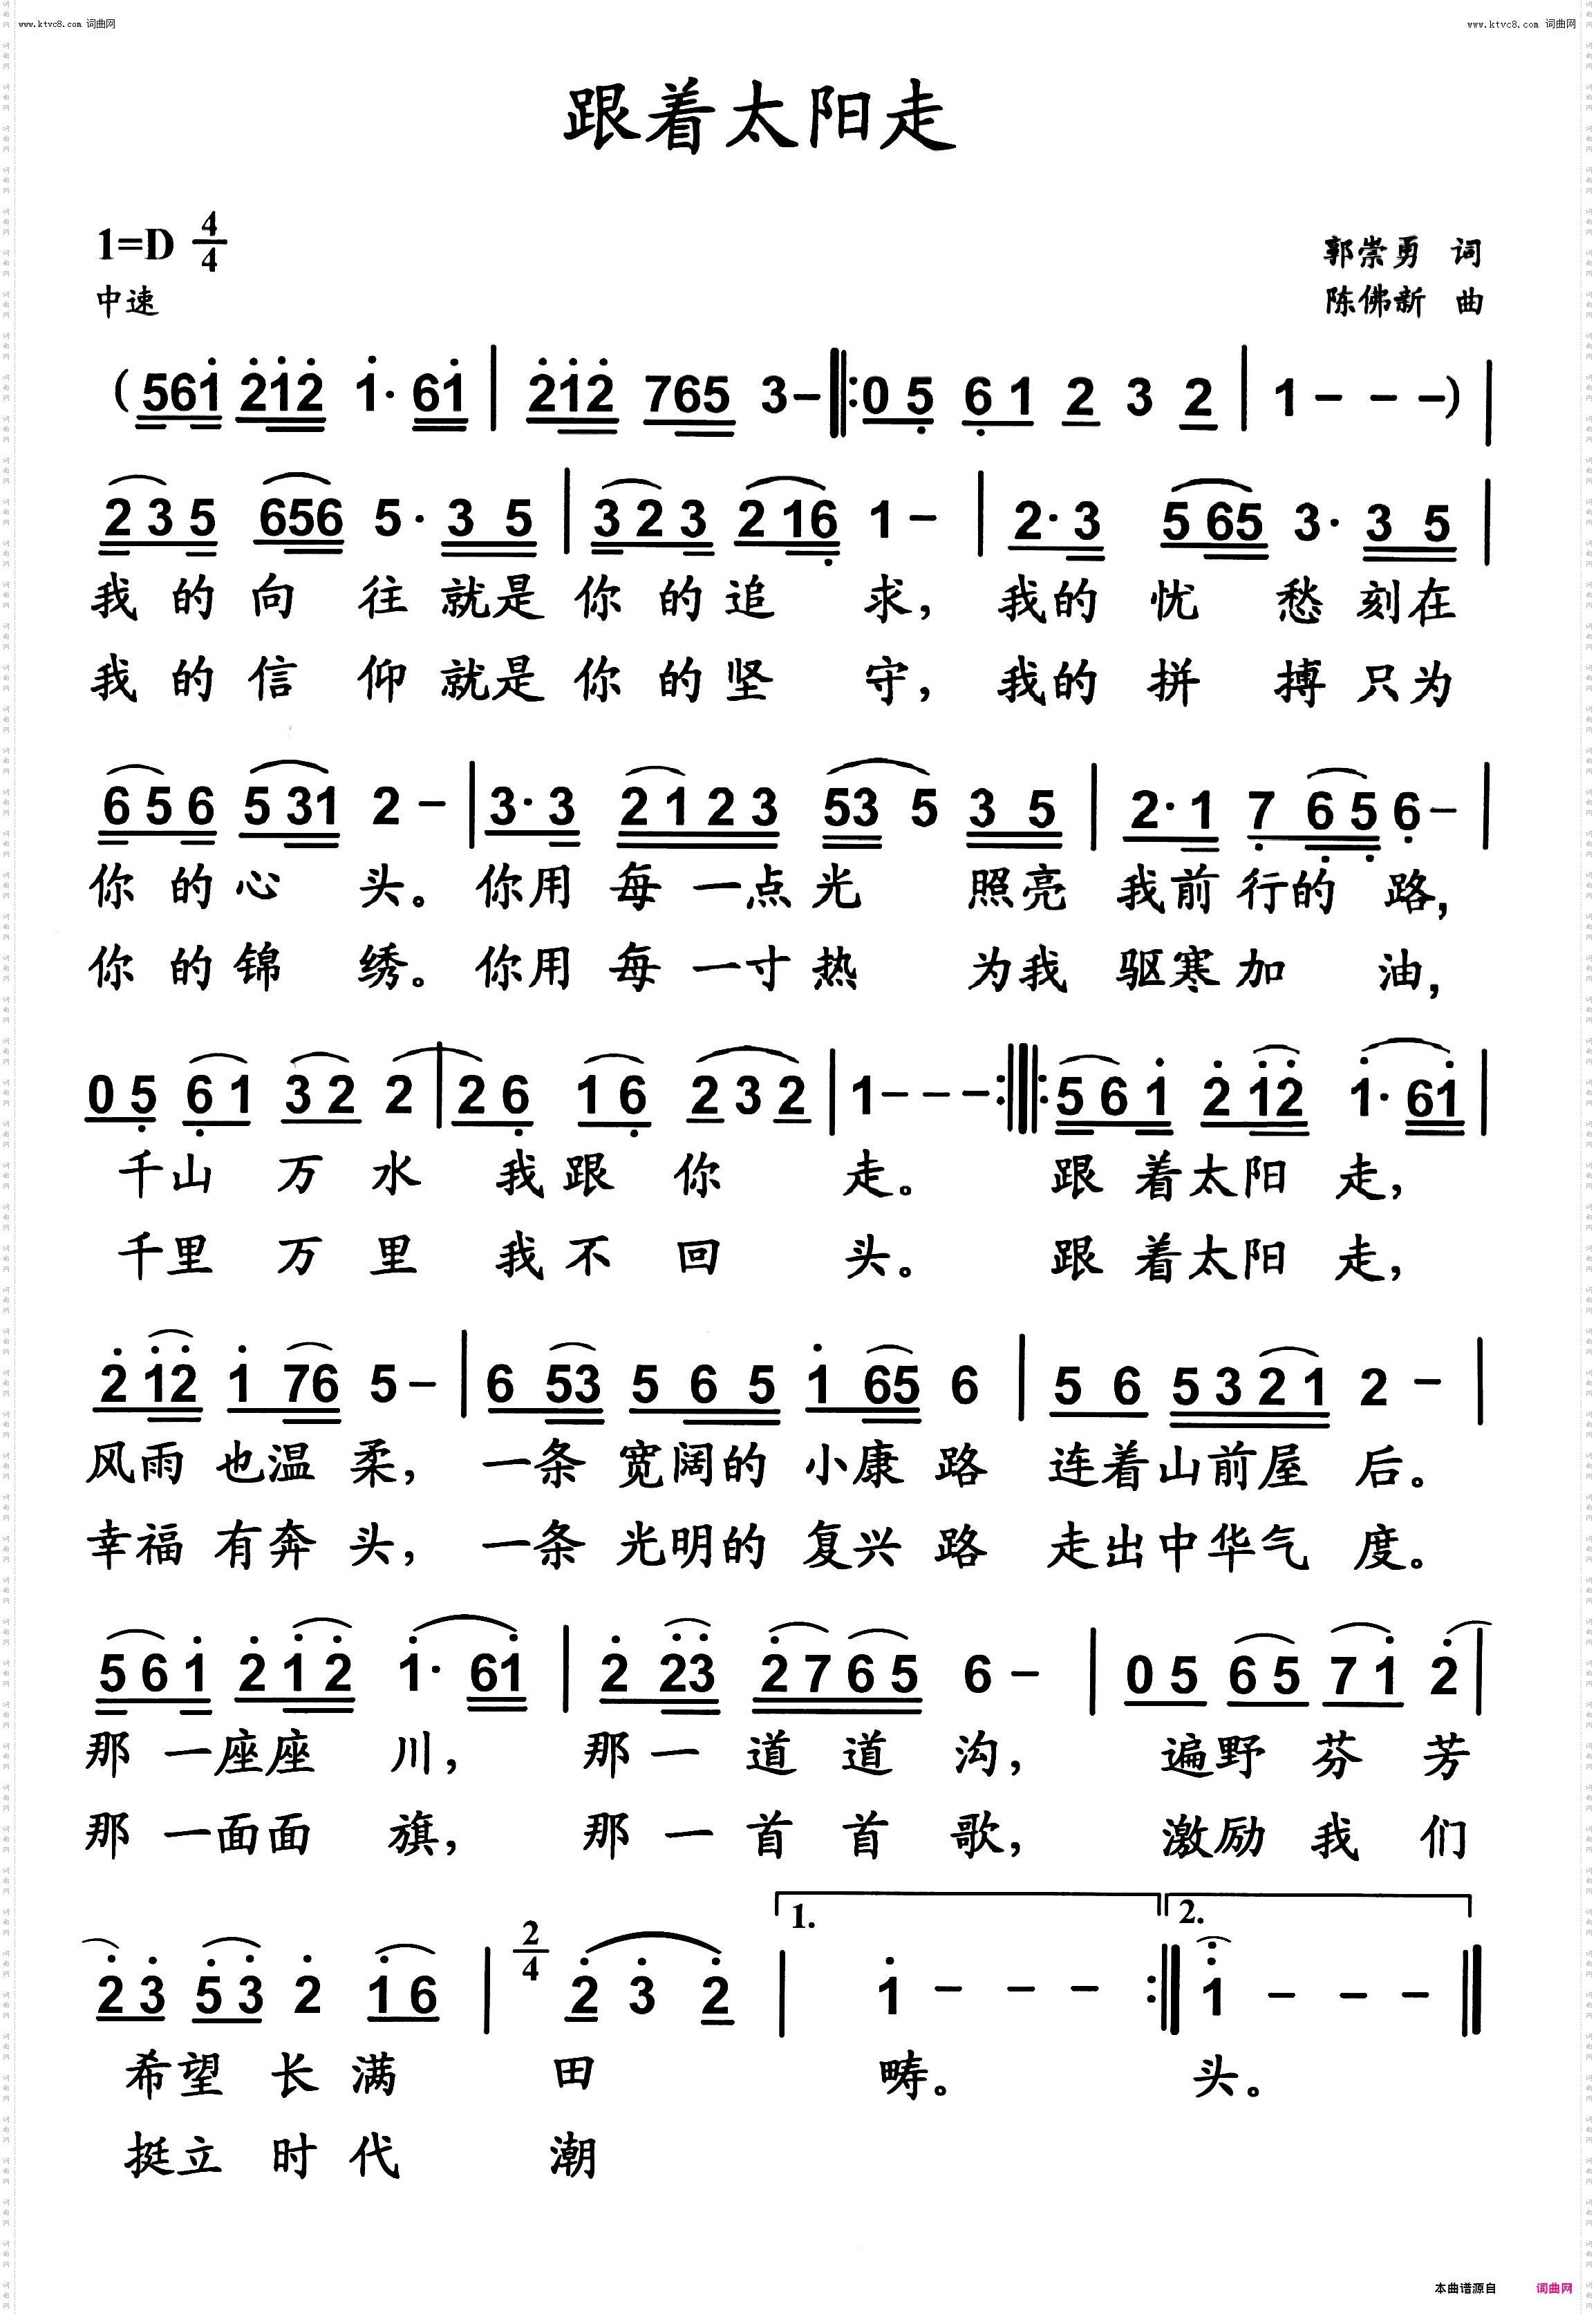 www.ktvc8.com 词曲网
www.ktvc8.com 词曲网
跟着太阳走
1=D 4/4
郭崇勇 词
中速
陈佛新 曲
(561 212 1· 61 | 212 765 3– ‖: 05 61 2 3 2 | 1 – – –) |
235 656 5· 35 | 323 216 1– | 2·3 565 3· 35 |
我的向往就是你的追求，我的忧愁刻在
我的信仰就是你的坚守，我的拼搏只为
656 531 2– | 3·3 2123 53 5 35 | 2·1 765 6– |
你的心头。你用每一点光照亮我前行的路，
你的锦绣。你用每一寸热为我驱寒加油，
05 61 32 2 | 26 16 232 | 1 – – – :‖: 561 212 1· 61 |
千山万水我跟你走。跟着太阳走，
千里万里我不回头。跟着太阳走，
212 176 5– | 653 565 165 6 | 56 5321 2– |
风雨也温柔，一条宽阔的小康路连着山前屋后。
幸福有奔头，一条光明的复兴路走出中华气度。
561 212 1· 61 | 223 2765 6– | 05 65 71 2 |
那一座座川，那一道道沟，遍野芬芳
那一面面旗，那一首首歌，激励我们
1. 2.
23 53 2 16 | 2/4 2 3 2 | 1 – – – :‖ 1 – – – ‖
希望长满田畴。头。
挺立时代潮
本曲谱源自 词曲网